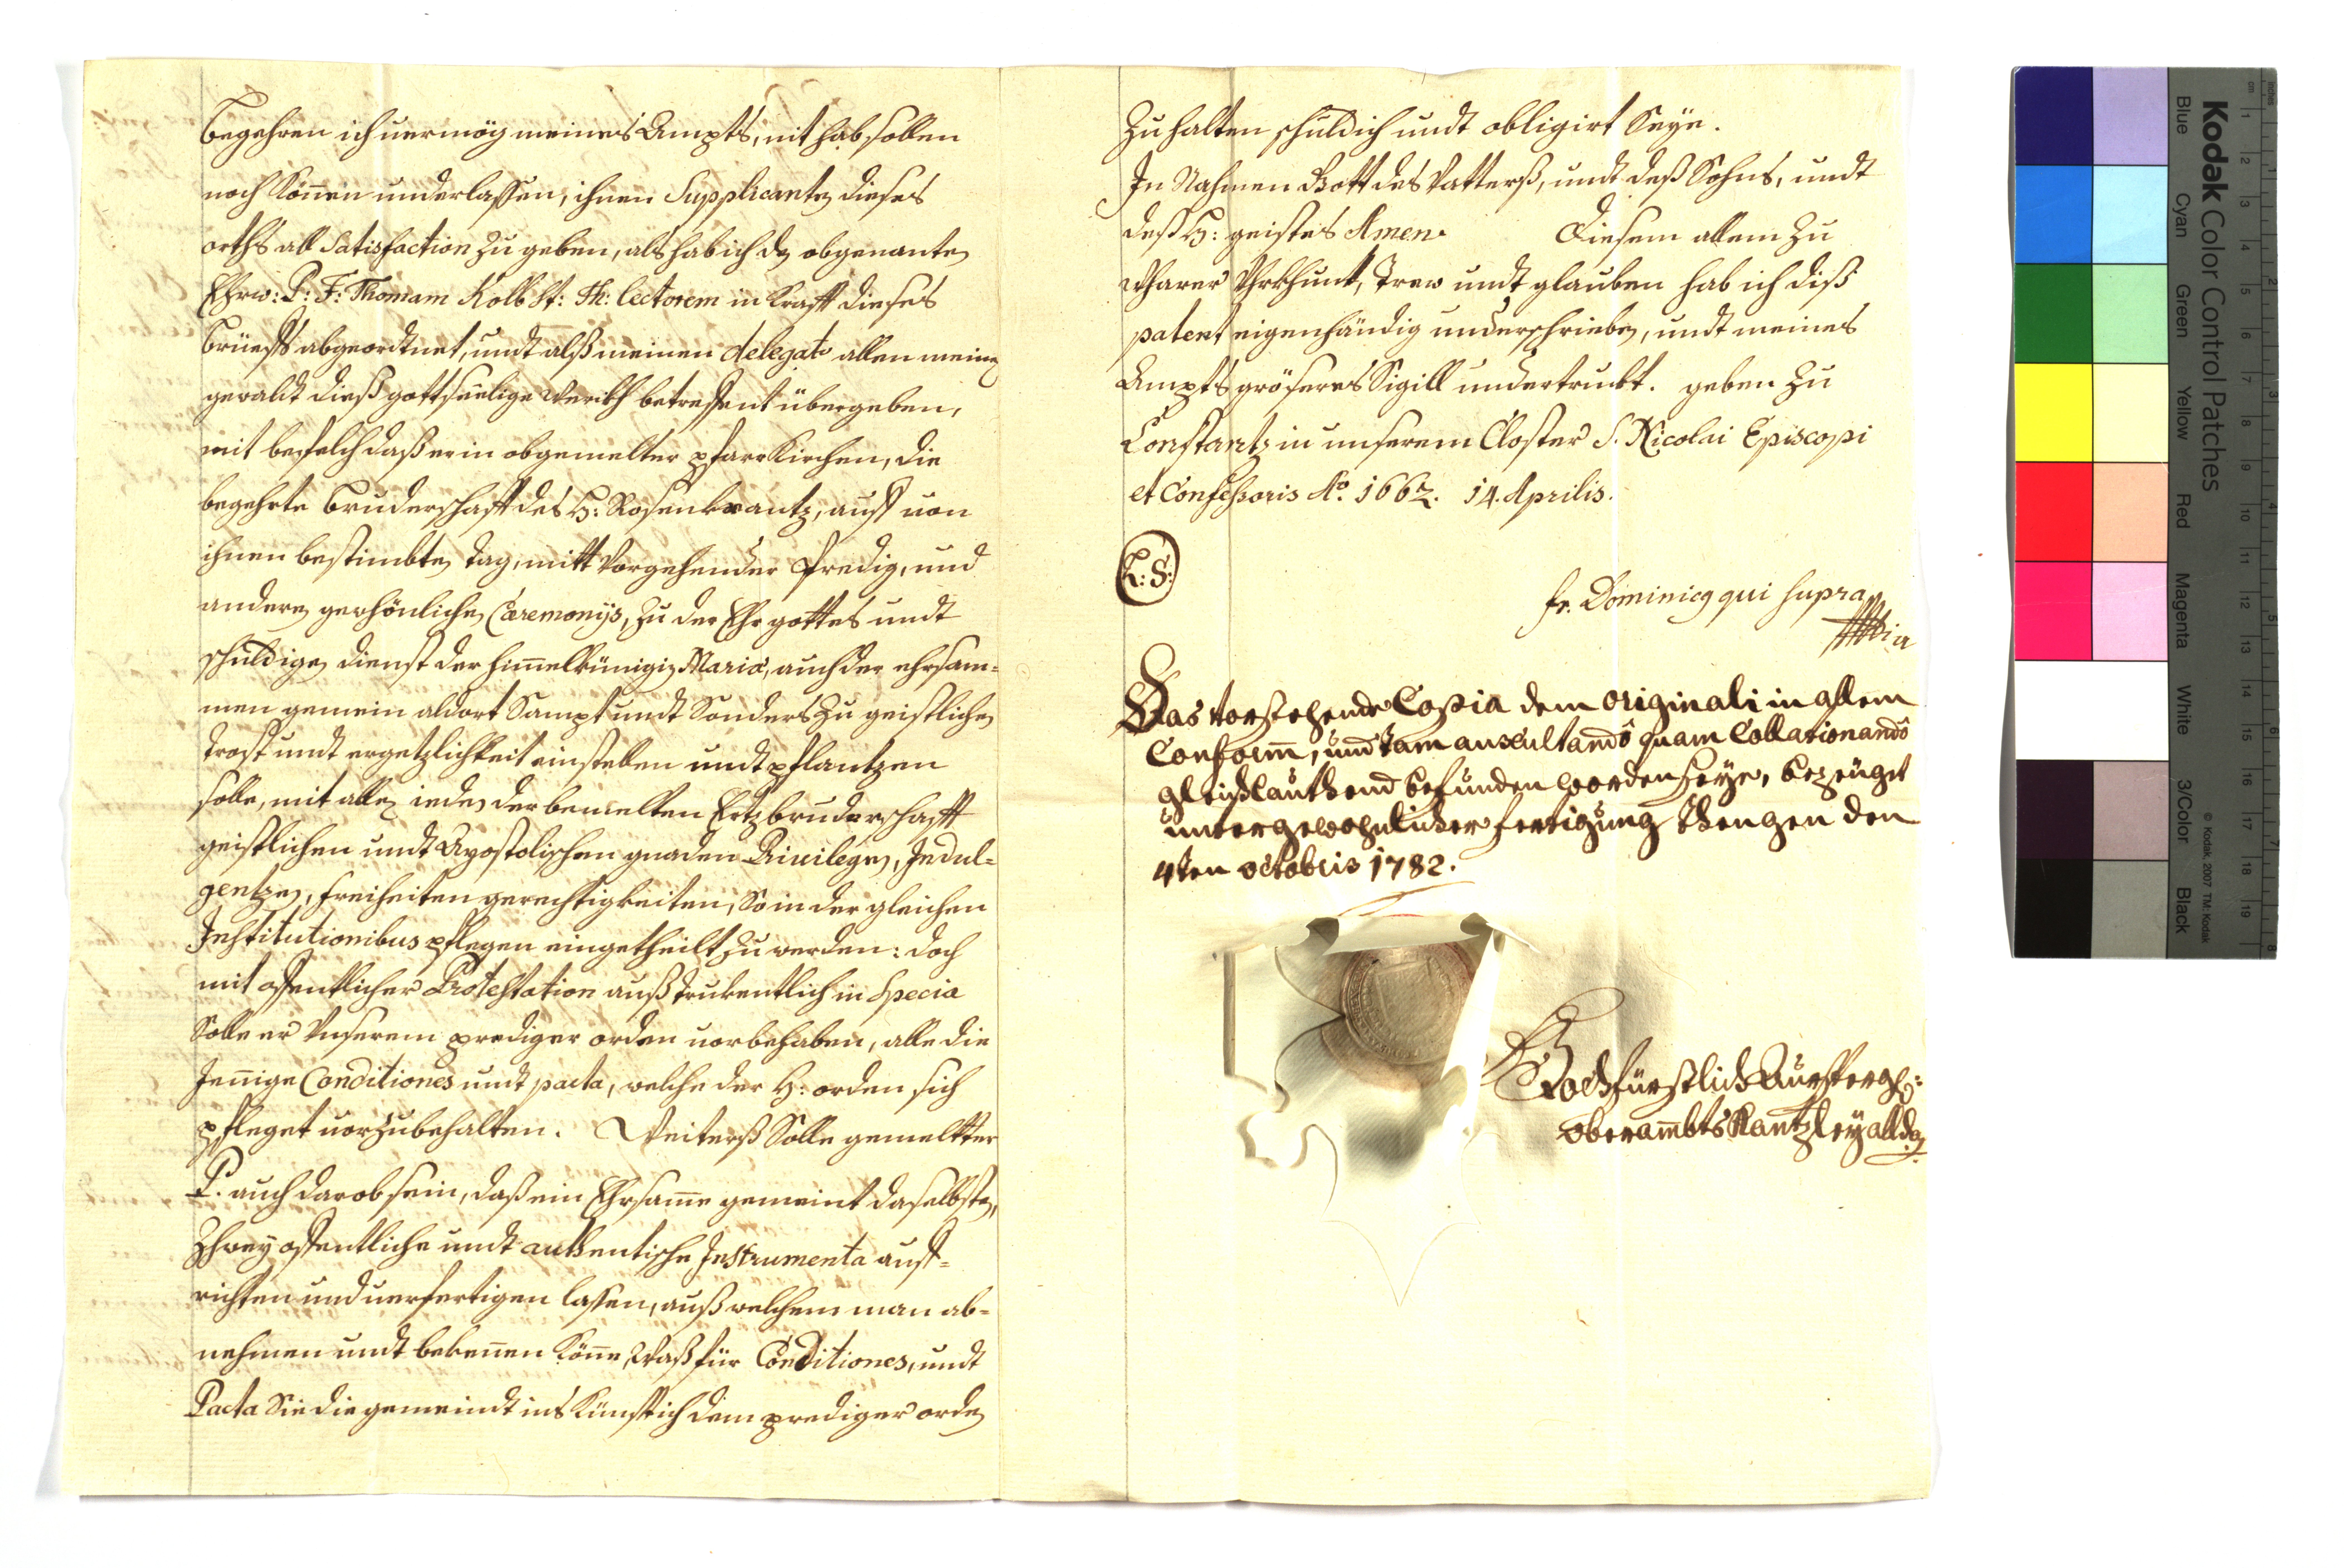 begehren ich uermög meines Ampts, nit hab sollen
noch könen underlassen, ihnen Supplicanten dieses
orths all Satisfaction zu geben, als hab ich dz obgenanten
Ehrw: P: F: Thomam Kolb St: Th: lectorem in krafft dieses
brüeffs abgeordtnet, undt alß meinen delegato allen meinen
gewaldt dieß gottseelige werckh betreffent übergeben,
mit befelch daß er in obgemelter pfarrkirchen, die
begehrte bruderschafft des H: Rosenkrantz, auff von
ihnen bestimbten tag, mitt vorgehender Predig, und
anderen gewhönlichen Cæremonijs, zu der Ehr gottes undt
schuldigen dienst der himelkünigin Mariæ, auch der ehrsam=
men gemein aldort Sampt undt Sonders zu geistlichen
trost undt ergetzlichkeit einstellen undt pflantzen
solle, mit allen ieden der bemelten Ertzbruderschafft
geistlichen undt Apostolischen gnaden Priuilegien, Indul=
gentzen, freiheiten gerechtigkeiten, So in der gleichen
Institutionibus pflegen eingetheilt zu werden: doch
mit offentlicher Protestation außtrukentlich in Specia
Solle er Vnserem prediger orden uorbehaben, alle die
Jenige Conditiones undt pacta, welche der H: orden sich
pfleget uorzubehalten. Weiterß Solle gemeltter
P. auch darob sein, daß ein Ehrsame gemeint daselbsten,
Zhwey offentliche undt authentische Instrumenta auff=
richten und uerfertigen lassen, auß welchem man ab=
nehmen undt bekenen köne, Waß für Conditiones, undt
Pacta Sie die gemeindt ins künfftich dem prediger orden
Zu halten schuldich undt obligirt Seÿe.
In Nahmen Gott des Vatterß, undt deß Sohns, undt
deß H: geistes Amen. Diesem allem Zu
wharer Vhrkhunt, Trew undt glauben hab ich diß
patent eigenhändig underschrieben, undt meines
Ampts gröseres Sigill undertrukt. geben Zu
Constantz in unserem Closter S. Nicolai Episcopi
et Confessoris Aº. 1662. 14. Aprilis.
L: S:
fr. Dominicq qui supra
Das vorstehende Copia dem originali in allem
Conform, und tam auscultando quam Collationando
gleichlauthend befunden worden seye, bezeuget
unter gewohnlicher fertigung Thengen den
4ten octobris 1782.
Hochfürstlich Aurspergl:
oberambts Kantzley allda